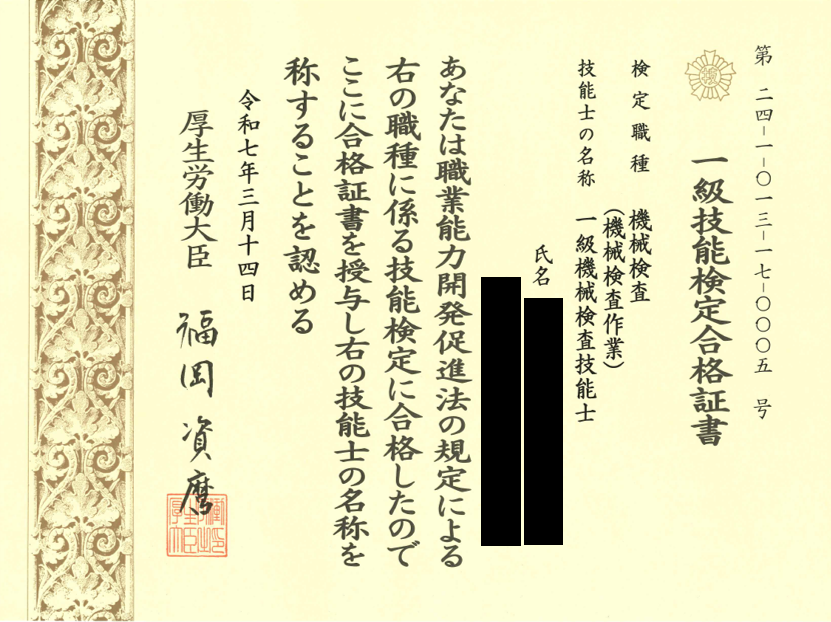 第 二四－一－〇一三－一七－〇〇〇五 号
一級技能検定合格証書
検定職種 機械検査
（機械検査作業）
技能士の名称 一級機械検査技能士
氏名
あなたは職業能力開発促進法の規定による
右の職種に係る技能検定に合格したので
ここに合格証書を授与し右の技能士の名称を
称することを認める
令和七年三月十四日
厚生労働大臣 福岡資麿